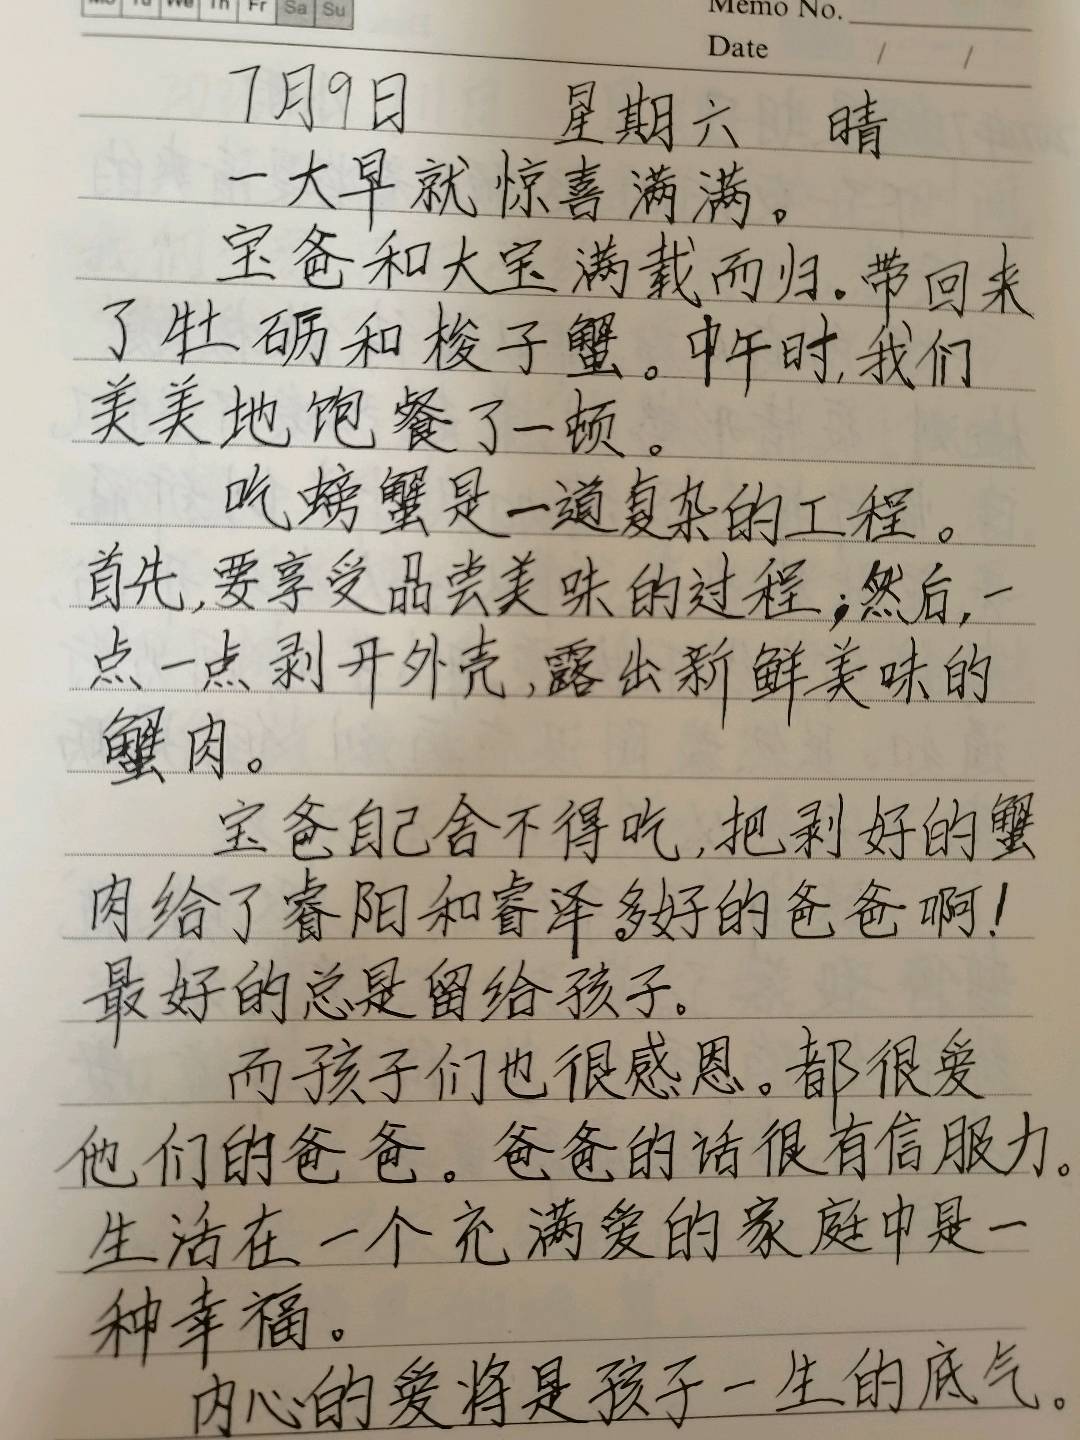 Mo Tu We Th Fr Sa Su
Memo No.
Date / /
7月9日 星期六 晴
一大早就惊喜满满。
宝爸和大宝满载而归。带回来
了牡砺和梭子蟹。中午时,我们
美美地饱餐了一顿。
吃螃蟹是一道复杂的工程。
首先,要享受品尝美味的过程;然后,一
点一点剥开外壳,露出新鲜美味的
蟹肉。
宝爸自己舍不得吃,把剥好的蟹
肉给了睿阳和睿泽。多好的爸爸啊!
最好的总是留给孩子。
而孩子们也很感恩。都很爱
他们的爸爸。爸爸的话很有信服力。
生活在一个充满爱的家庭中是一
种幸福。
内心的爱将是孩子一生的底气。